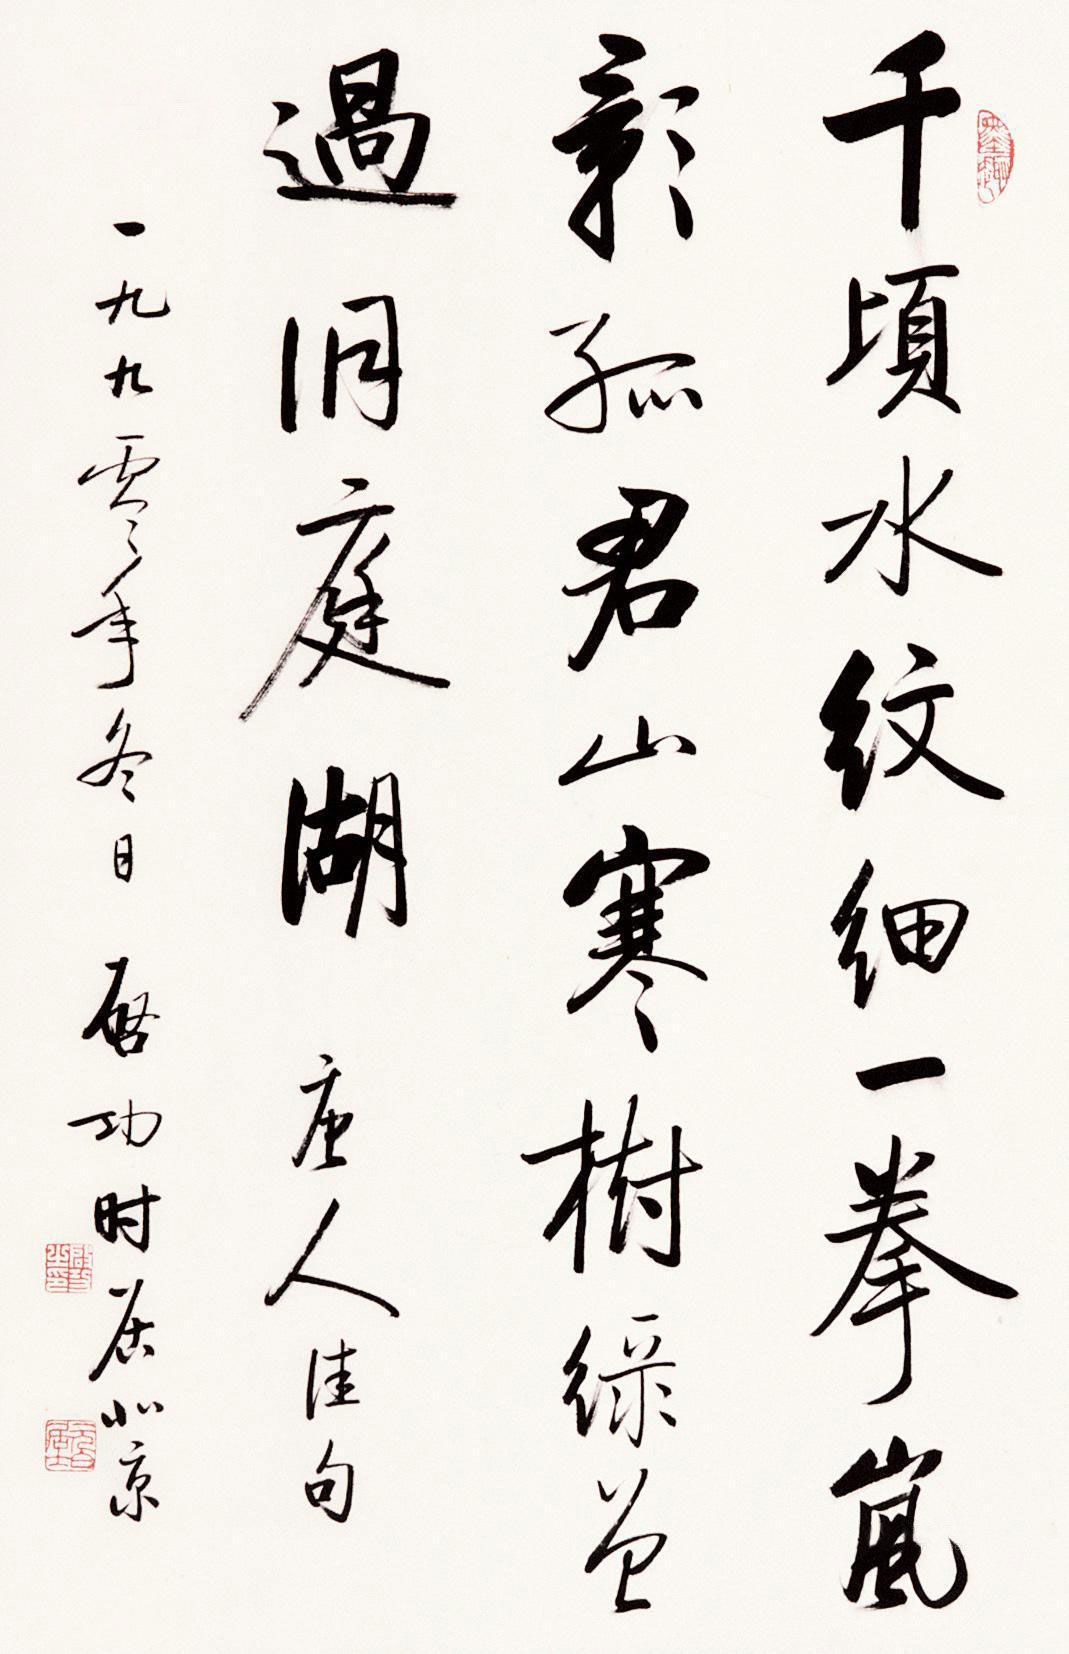 千頃水紋細一拳嵐
影孤君山寒樹綠曾
過洞庭湖 唐人佳句
一九九零年冬日 啓功时居北京